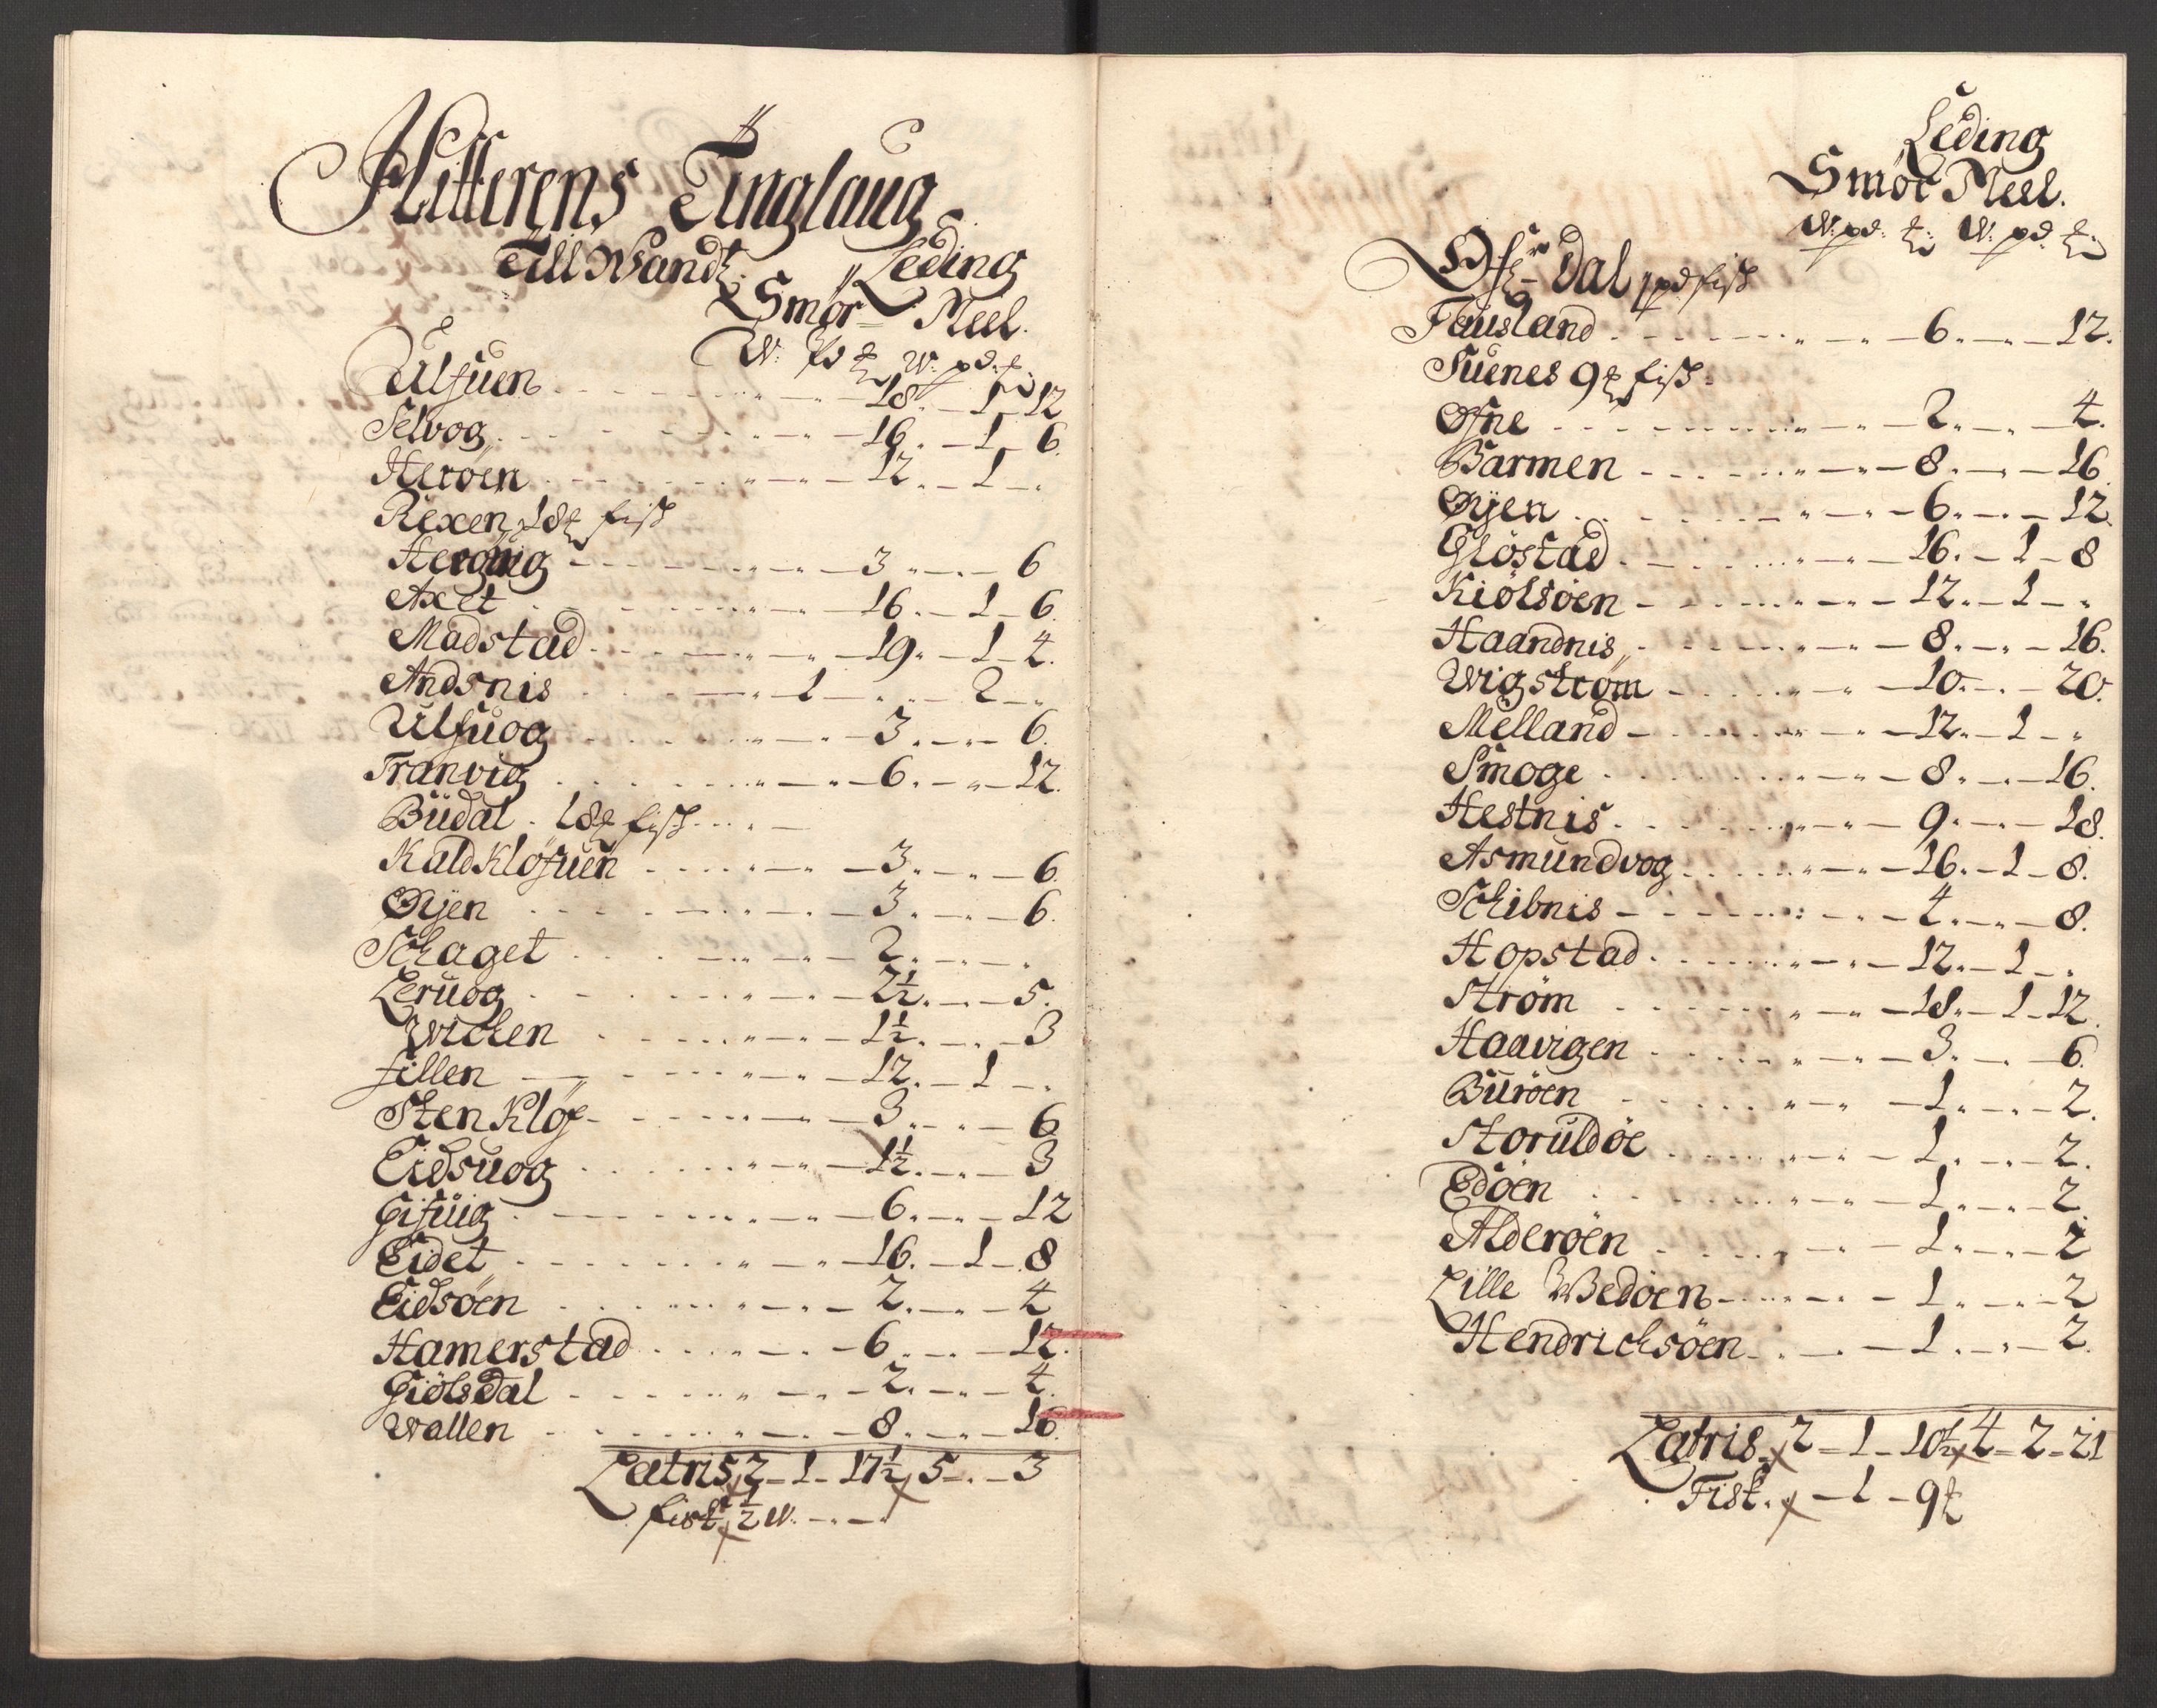 Hitterens Tinglaug
Till Wandz.
Leding
Smør Meel.
W: Pd ℔ W: pd: ℔
Ulfuen - 18 - 1 - 12
Selvog - 16 - 1 - 6.
Herøen - 12 - 1 -
Rexen 18 ℔ fisk
Hergvig - 3 - 6
Axet - 16 - 1 - 6.
Madstad - 19 - 1 - 4.
Andsnis - 1 - 2 -
Ulfuog - 3 - 6.
Tranvig - 6 - 12.
Büdal - 18 ℔ fisk
Kaldkløfuen - 3 - 6.
Øyen - 3 - 6.
Schaget - 2 -
Leruog - 2½ - 5.
Wichen - 1½ - 3
fillen - 12 - 1 -
Stenkløf - 3 - 6
Eidsuog - 1½ - 3
Gifuig - 6 - 12
Eidet - 16 - 1 - 8
Eidsøen - 2 - 4
Hamerstad - 6 - 12.
Giölsdal - 2 - 4.
Wallen - 8 - 16.
Latris 2 - 1 - 17½ 5 - 3
fisk ½ W.
Leding
Smør Meel.
W: pd: ℔: W: pd: ℔:
Dal 1 pd fisk
Fausland - 6 - 12.
Suenes 9 ℔ fisk
Ofne - 2 - 4.
Barmen - 8 - 16
Øyen - 6 - 12.
Gløstad - 16 - 1 - 8
Kiölsöen - 12 - 1 -
Haandnis - 8 - 16.
Wigstrøm - 10 - 20.
Melland - 12 - 1 -
Smoge - 8 - 16.
Hestnis - 9 - 18.
Asmundvog - 16 - 1 - 8.
Schibnis - 4 - 8.
Hopstad - 12 - 1 -
Strøm - 18 - 1 - 12.
Haavigen - 3 - 6.
Burøen - 1 - 2.
Storuldøe - 1 - 2.
Edøen - 1 - 2.
Alderøen - 1 - 2
Lille Wedøen - 1 - 2
Hendrichsøen - 1 - 2.
Latris 2 - 1 - 10½ 4 - 2 - 21
Fisk - 1 - 9 ℔